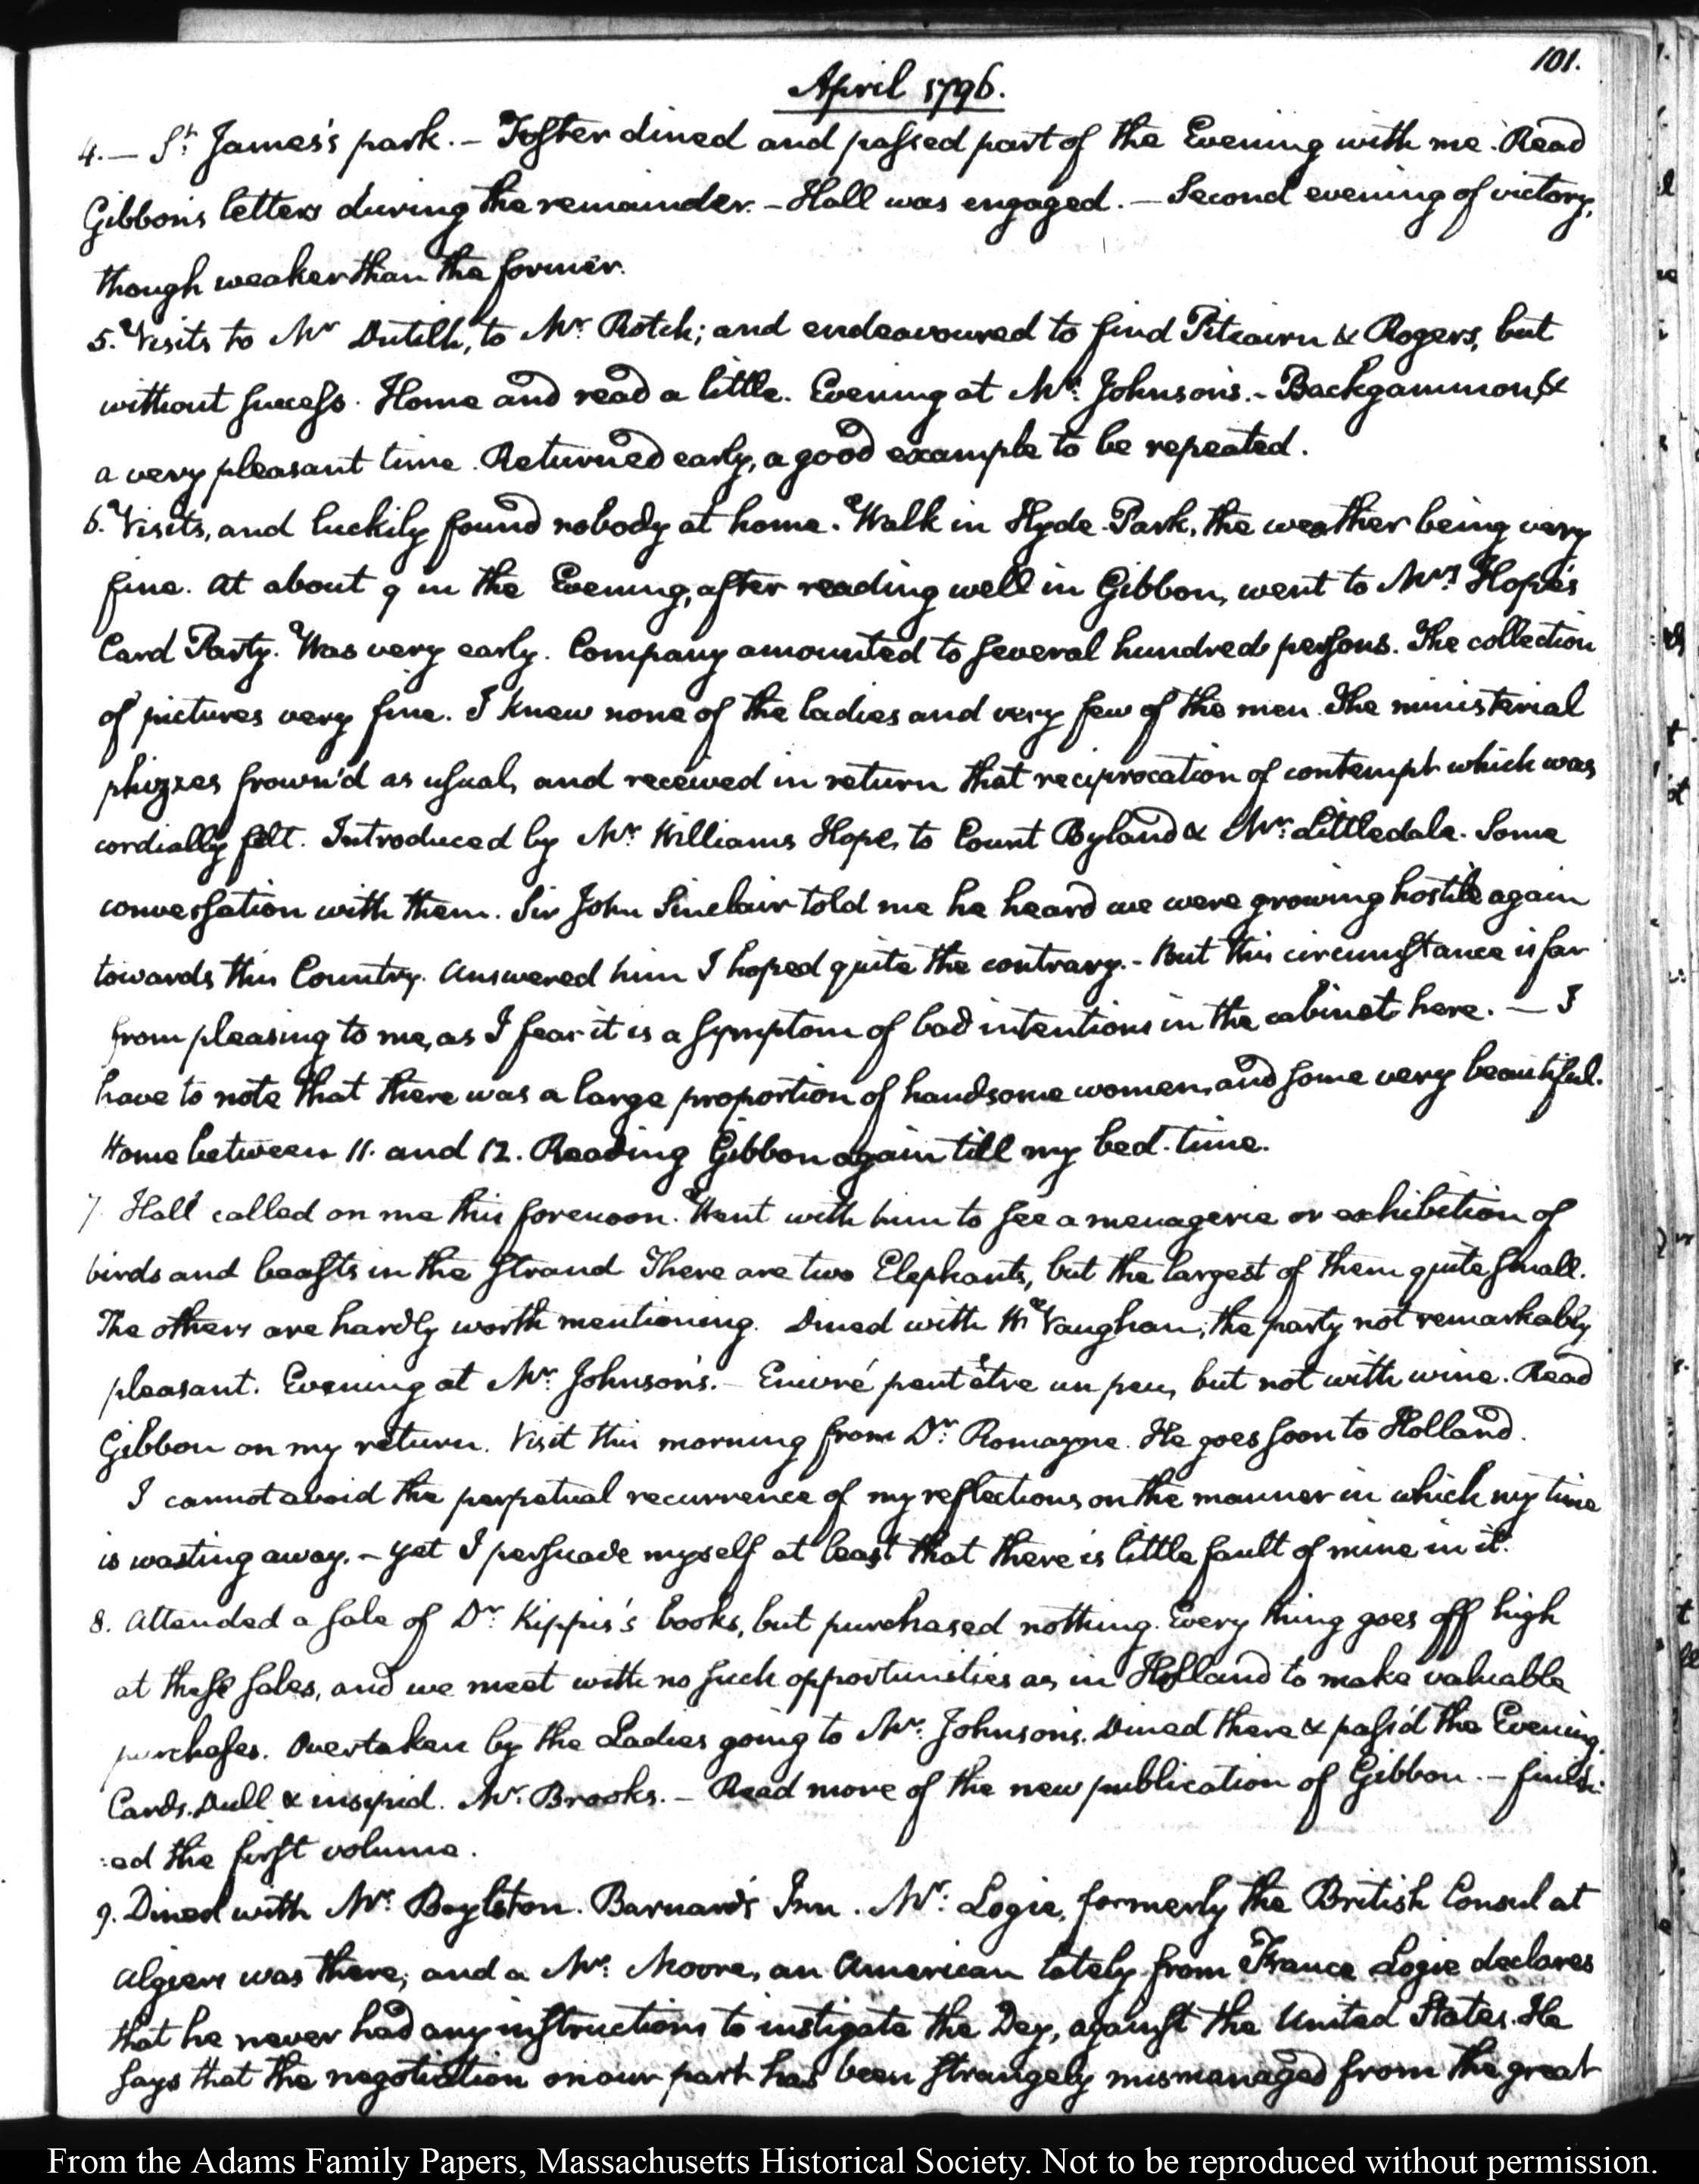 101.
April 1796.
4. — St. James's park. — Foster dined and passed part of the Evening with me. Read
Gibbon's letters during the remainder. — Hall was engaged. — Second evening of victory,
though weaker than the former.
5. Visits to Mr Dutilh, to Mr. Rotch; and endeavoured to find Pitcairn & Rogers, but
without success. Home and read a little. Evening at Mr. Johnson's. — Backgammon, &
a very pleasant time. Returned early, a good example to be repeated.
6. Visits, and luckily found nobody at home. Walk in Hyde-Park, the weather being very
fine. At about 9 in the Evening, after reading well in Gibbon, went to Mrs. Hope's
Card Party. Was very early. Company amounted to several hundred persons. The collection
of pictures very fine. I knew none of the ladies and very few of the men. The ministerial
phizzes frown'd as usual, and received in return that reciprocation of contempt which was
cordially felt. Introduced by Mr. Williams Hope, to Count Byland & Mr. Littledale. Some
conversation with them. Sir John Sinclair told me he heard we were growing hostile again
towards this Country. Answered him I hoped quite the contrary. — But this circumstance is far
from pleasing to me, as I fear it is a symptom of bad intentions in the cabinet here. — I
have to note that there was a large proportion of handsome women, and some very beautiful.
Home between 11. and 12. Reading Gibbon again till my bed-time.
7. Hall called on me this forenoon. Went with him to see a menagerie or exhibition of
birds and beasts in the Strand. There are two Elephants, but the largest of them quite small.
The others are hardly worth mentioning. Dined with W. Vaughan; the party not remarkably
pleasant. Evening at Mr. Johnson's. — Enivré peut être un peu, but not with wine. Read
Gibbon on my return. Visit this morning from Dr. Romayne. He goes soon to Holland.
I cannot avoid the perpetual recurrence of my reflections on the manner in which my time
is wasting away. — yet I persuade myself at least that there is little fault of mine in it.
8. Attended a sale of Dr. Kippis's books, but purchased nothing. Every thing goes off high
at these sales, and we meet with no such opportunities as in Holland to make valuable
purchases. Overtaken by the Ladies going to Mr. Johnson's. Dined there & pass'd the Evening.
Cards. Dull & insipid. Mr. Brooks. — Read more of the new publication of Gibbon. — finish:
:ed the first volume.
9. Dined with Mr. Boylston. Barnard's Inn. Mr. Logie, formerly the British Consul at
Algiers was there; and a Mr. Moore, an American lately from France. Logie declares
that he never had any instructions to instigate the Dey, against the United States. He
says that the negotiation on our part has been strangely mismanaged from the great
From the Adams Family Papers, Massachusetts Historical Society. Not to be reproduced without permission.